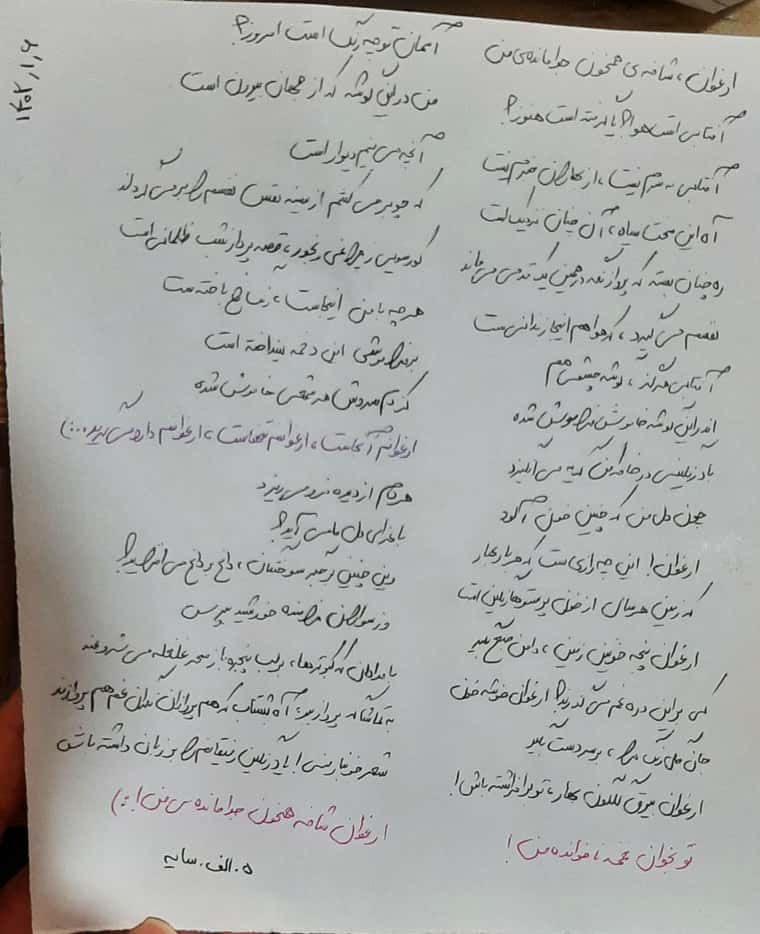 ۱۴۰۲,۱,۶
ارغوان، شاخه‌ی همخون جدا مانده‌ی من
آسمان تو چه رنگ است امروز؟
آفتابی است هوا؟ یا گرفته است هنوز؟
من در این گوشه که از جهان بیرون است
آفتابی به سرم نیست، از بهاران خبرم نیست
آنچه می‌بینم دیوار است
آه این سخت سیاه، آن چنان نزدیک است
که چو بر می‌کشم از سینه نفس نفسم را بر می‌گرداند
ره چنان بسته که پرواز نگه در همین یک قدمی می‌ماند
کورسویی ز چراغی رنجور، قصه پرداز شب ظلمانی است
نفسم می‌گیرد، که هوا هم اینجا زندانی ست
هر چه با من اینجاست، رنگ رخ باخته ست
آفتابی هرگز، گوشه چشمی هم
بر فراموشی این دخمه نینداخته است
اندر این گوشه خاموش فراموش شده
کز دم سردش هر شمعی خاموش شده
یاد رنگینی در خاطر من گریه می‌انگیزد
ارغوانم آنجاست، ارغوانم تنهاست، ارغوانم دارد می‌گرید...:)
چون دل من که چنین خون آلود
هر دم از دیده فرو می‌ریزد
ارغوان! این چه رازی ست که هر بار بهار
با عزای دل ما می‌آید؟
که زمین هر سال از خون پرستوها رنگین است
وین چنین بر جگر سوختگان، داغ بر داغ می‌افزاید؟
ارغوان پنجه خونین زمین، دامن صبح بگیر
وز سواران خرامنده خورشید بپرس
کی بر این دره غم می‌گذرند؟ ارغوان خوشه خون
بامدادان که کبوترها، بر لب پنجره باز سحر غلغله می
جان گل رنگ مرا، بر سر دست بگیر
به تماشاگه پرواز ببر؛ آه بشتاب که هم پروازان نگران غم هم پروازند
ارغوان بیرق گلگون بهار، تو برافراشته باش!
شعر خونبار منی! یاد رنگین رفیقانم را بر زبان داشته باش
تو بخوان نغمه ناخوانده من!
ارغوان شاخه همخون جدا مانده‌ی من! :)
ه.الف.سایه